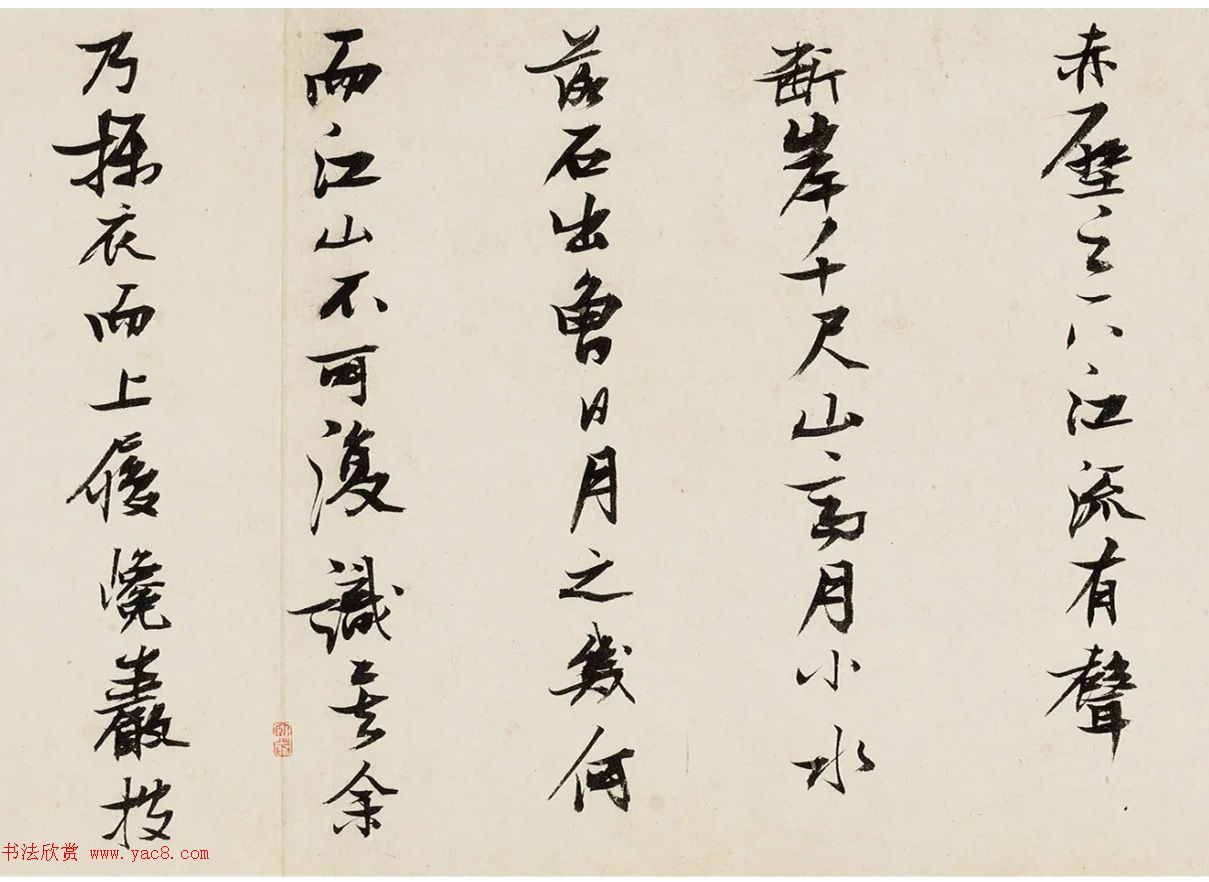 赤壁之下江流有聲
斷岸千尺山高月小水
落石出曾日月之幾何
而江山不可復識矣余
乃攝衣而上履巉巖披
书法欣赏 www.yac8.com